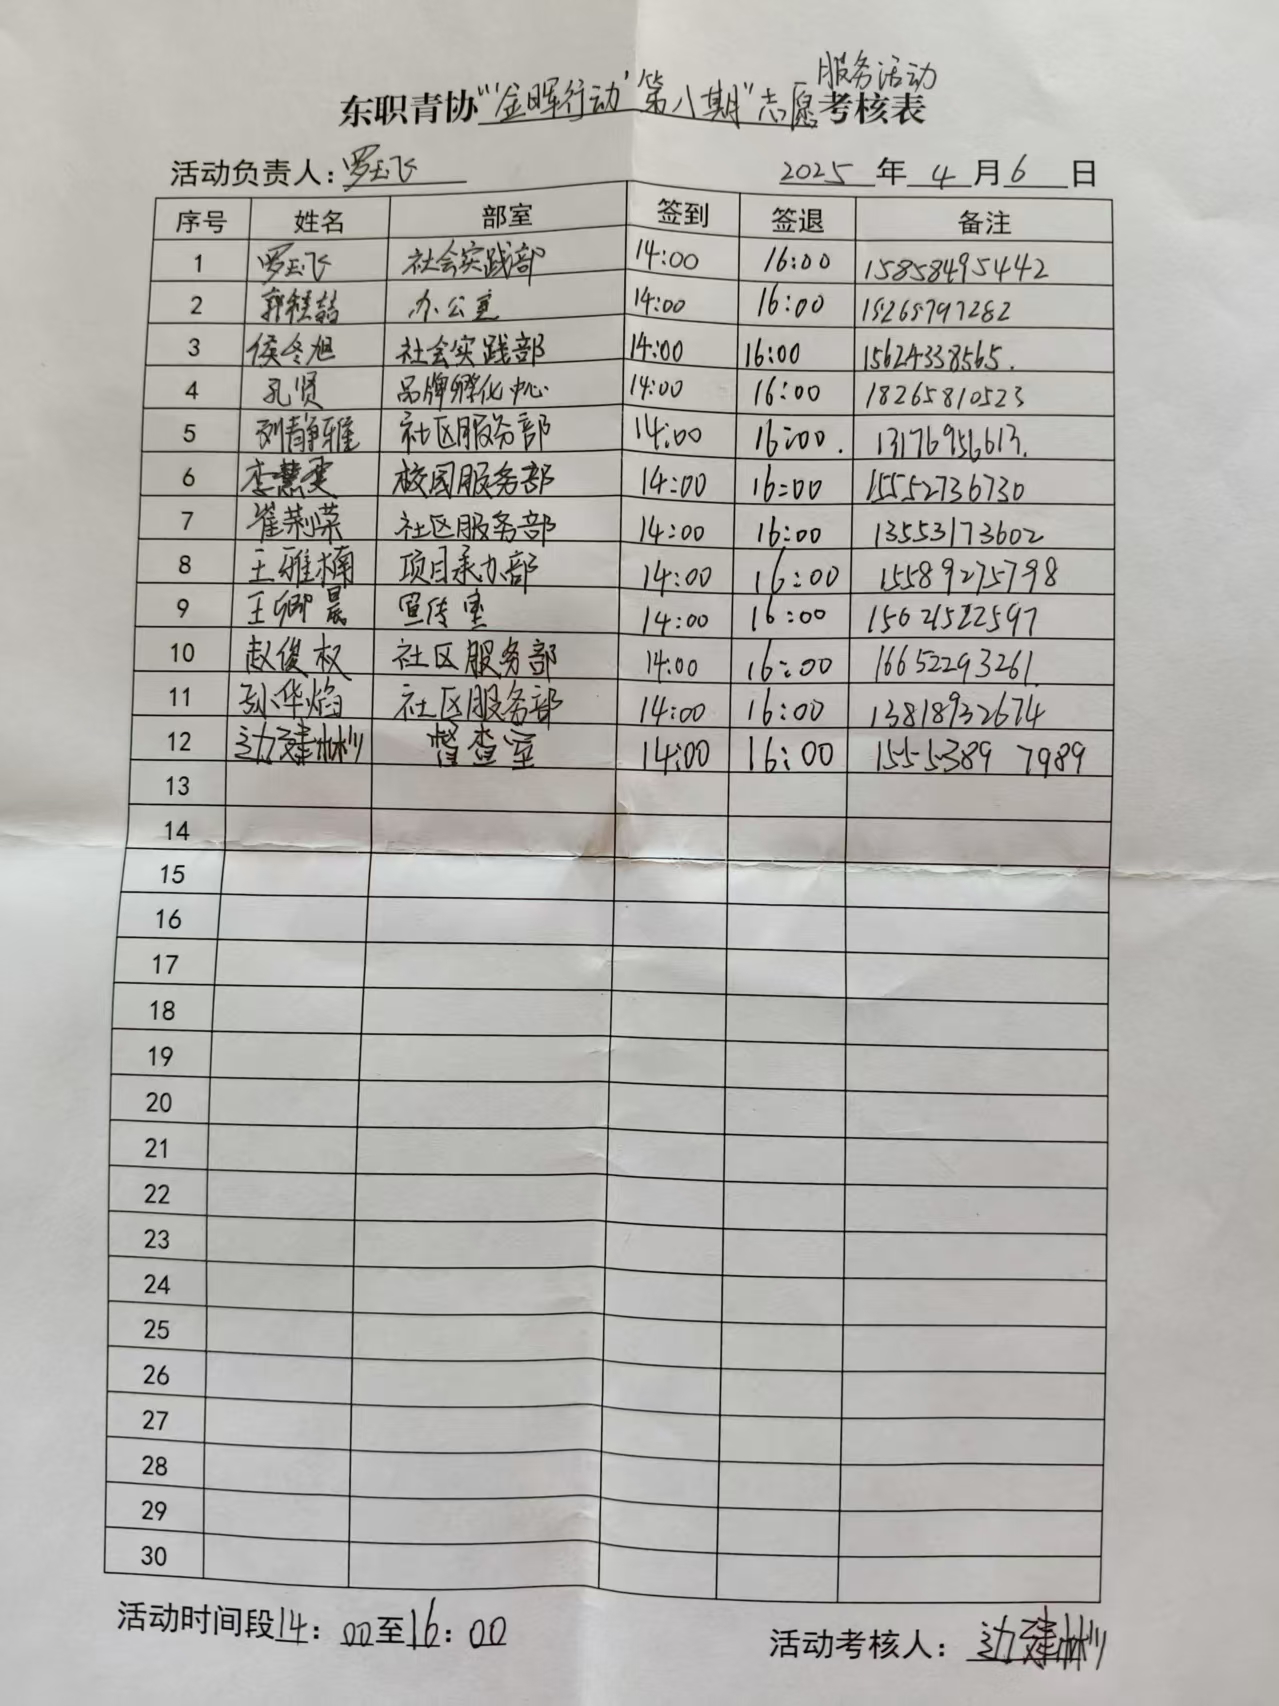 服务活动
东职青协"‘金晖行动’第八期"志愿考核表
活动负责人：罗玉飞 2025年4月6日
序号 姓名 部室 签到 签退 备注
1 罗玉飞 社会实践部 14:00 16:00 15858495442
2 办公室 14:00 16:00 15265797282
3 侯冬旭 社会实践部 14:00 16:00 15624338565.
4 孔贤 品牌孵化中心 14:00 16:00 18265810523
5 刘静雅 社区服务部 14:00 16:00. 13176956613.
6 李慧雯 校园服务部 14:00 16:00 15552736730
7 崔荆荣 社区服务部 14:00 16:00 13553173602
8 王雅楠 项目承办部 14:00 16:00 15589275798
9 王卿晨 宣传室 14:00 16:00 15621522597
10 赵俊权 社区服务部 14:00 16:00 16652293261.
11 孙华焰 社区服务部 14:00 16:00 13818932674
12 边建彬 督查室 14:00 16:00 15553897989
13
14
15
16
17
18
19
20
21
22
23
24
25
26
27
28
29
30
活动时间段14：00至16：00
活动考核人：边建彬